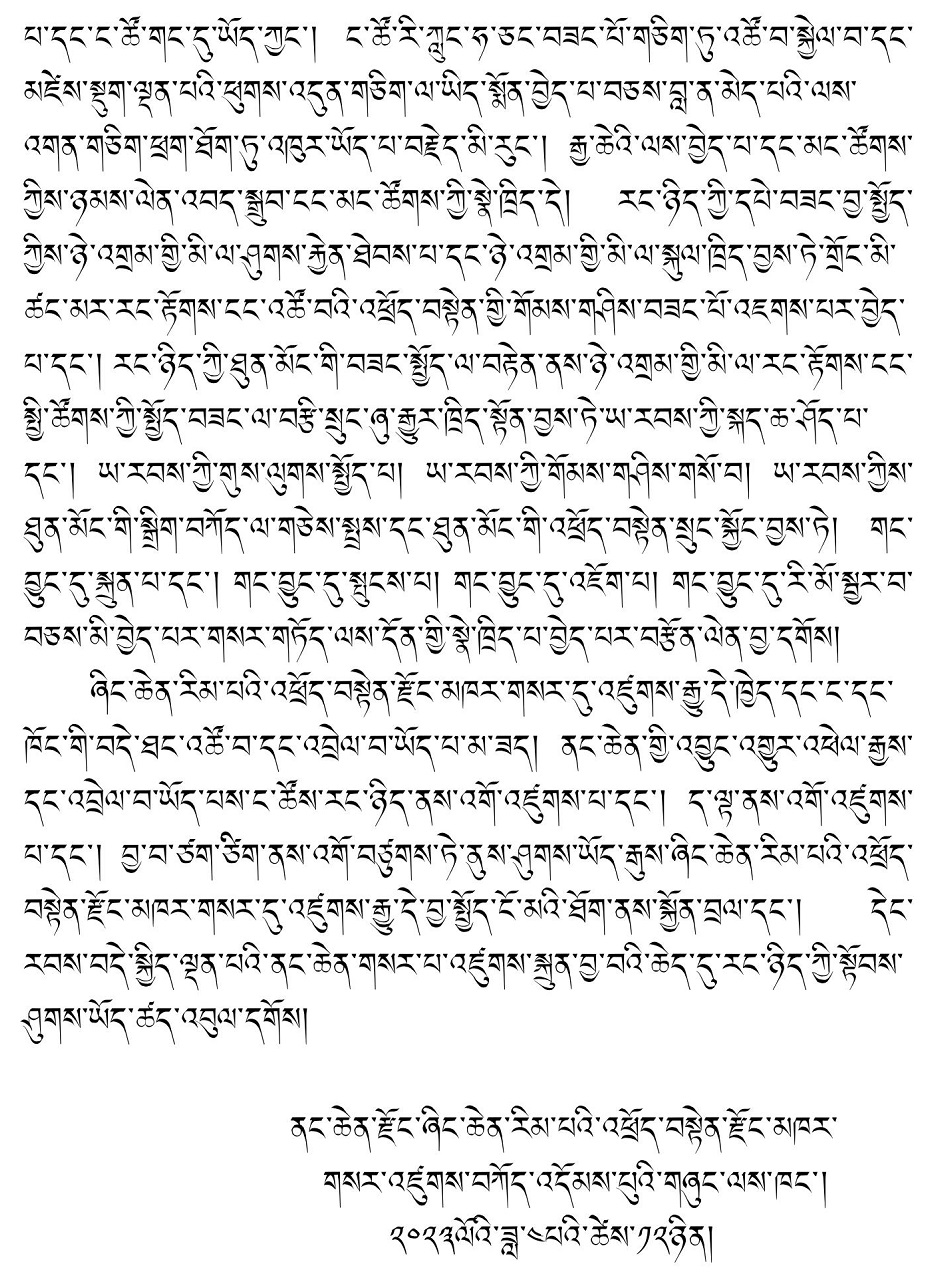 པ་དང་ང་ཚོ་གང་དུ་ཡོད་ཀྱང་། ང་ཚོ་རི་ཀླུང་ཧ་ཅང་བཟང་པོ་གཅིག་ཏུ་འཚོ་བ་སྐྱེལ་བ་དང་
མཛེས་སྡུག་ལྡན་པའི་ཕུགས་འདུན་གཅིག་ལ་ཡིད་སྨོན་བྱེད་པ་བཅས་བླ་ན་མེད་པའི་ལས་
འགན་གཅིག་ཕྲག་ཐོག་ཏུ་འཁུར་ཡོད་པ་བརྗེད་མི་རུང་། རྒྱ་ཆེའི་ལས་བྱེད་པ་དང་མང་ཚོགས་
ཀྱིས་ཉམས་ལེན་འབད་སྒྲུབ་ངང་མང་ཚོགས་ཀྱི་སྣེ་ཁྲིད་དེ། རང་ཉིད་ཀྱི་དཔེ་བཟང་བྱ་སྤྱོད་
ཀྱིས་ཉེ་འགྲམ་གྱི་མི་ལ་ཤུགས་རྐྱེན་ཐེབས་པ་དང་ཉེ་འགྲམ་གྱི་མི་ལ་སྐུལ་ཁྲིད་བྱས་ཏེ་གྲོང་མི་
ཚང་མར་རང་རྟོགས་ངང་འཚོ་བའི་འཕྲོད་བསྟེན་གྱི་གོམས་གཤིས་བཟང་པོ་འཇགས་པར་བྱེད་
པ་དང་། རང་ཉིད་ཀྱི་ཐུན་མོང་གི་བཟང་སྤྱོད་ལ་བརྟེན་ནས་ཉེ་འགྲམ་གྱི་མི་ལ་རང་རྟོགས་ངང་
སྤྱི་ཚོགས་ཀྱི་སྤྱོད་བཟང་ལ་བརྩི་སྲུང་ཞུ་རྒྱུར་ཁྲིད་སྟོན་བྱས་ཏེ་ཡ་རབས་ཀྱི་སྐད་ཆ་ཤོད་པ་
དང་། ཡ་རབས་ཀྱི་གུས་ལུགས་སྤྱོད་པ། ཡ་རབས་ཀྱི་གོམས་གཤིས་གསོ་བ། ཡ་རབས་ཀྱིས་
ཐུན་མོང་གི་སྒྲིག་བཀོད་ལ་གཅེས་སྤྲས་དང་ཐུན་མོང་གི་འཕྲོད་བསྟེན་སྲུང་སྐྱོང་བྱས་ཏེ། གང་
བྱུང་དུ་སྐྲུན་པ་དང་། གང་བྱུང་དུ་སྤུངས་པ། གང་བྱུང་དུ་འཇོག་པ། གང་བྱུང་དུ་རི་མོ་སྦྱར་བ་
བཅས་མི་བྱེད་པར་གསར་གཏོད་ལས་དོན་གྱི་སྣེ་ཁྲིད་པ་བྱེད་པར་བརྩོན་ལེན་བྱ་དགོས།
ཞིང་ཆེན་རིམ་པའི་འཕྲོད་བསྟེན་རྫོང་མཁར་གསར་དུ་འཛུགས་རྒྱུ་དེ་ཁྱེད་དང་ང་དང་
ཁོང་གི་བདེ་ཐང་འཚོ་བ་དང་འབྲེལ་བ་ཡོད་པ་མ་ཟད། ནང་ཆེན་གྱི་འབྱུང་འགྱུར་འཕེལ་རྒྱས་
དང་འབྲེལ་བ་ཡོད་པས་ང་ཚོས་རང་ཉིད་ནས་འགོ་འཛུགས་པ་དང་། ད་ལྟ་ནས་འགོ་འཛུགས་
པ་དང་། བྱ་བ་ཙག་ཙིག་ནས་འགོ་བཙུགས་ཏེ་ནུས་ཤུགས་ཡོད་རྒུས་ཞིང་ཆེན་རིམ་པའི་འཕྲོད་
བསྟེན་རྫོང་མཁར་གསར་དུ་འཛུགས་རྒྱུ་དེ་བྱ་སྤྱོད་ངོ་མའི་ཐོག་ནས་སྐྱོན་བྲལ་དང་། དེང་
རབས་བདེ་སྐྱིད་ལྡན་པའི་ནང་ཆེན་གསར་པ་འཛུགས་སྐྲུན་བྱ་བའི་ཆེད་དུ་རང་ཉིད་ཀྱི་སྟོབས་
ཤུགས་ཡོད་ཚད་འབུལ་དགོས།
ནང་ཆེན་རྫོང་ཞིང་ཆེན་རིམ་པའི་འཕྲོད་བསྟེན་རྫོང་མཁར་
གསར་འཛུགས་བཀོད་འདོམས་པུའི་གཞུང་ལས་ཁང་།
༢༠༢༣ལོའི་ཟླ་༤པའི་ཚེས་༡༢ཉིན།